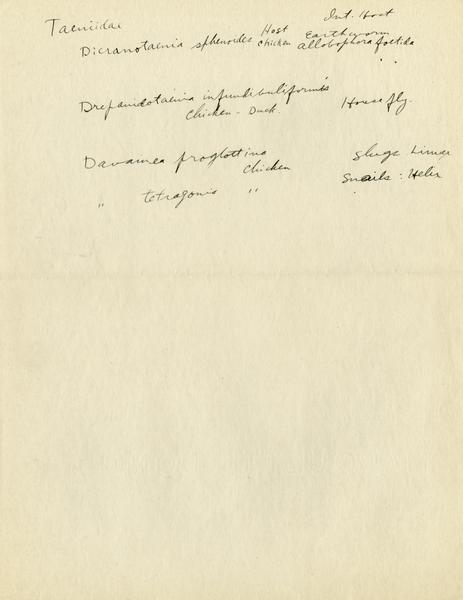 Taeniidae Host Int. Host
Dicranotaenia sphenoides Chicken Earthworm allobophora foetida
Drepanidotaenia infundibuliformis
Chicken - Duck. House fly.
Davainea proglottina Chicken Slugs Limax
" tetragonis " Snails : Helix